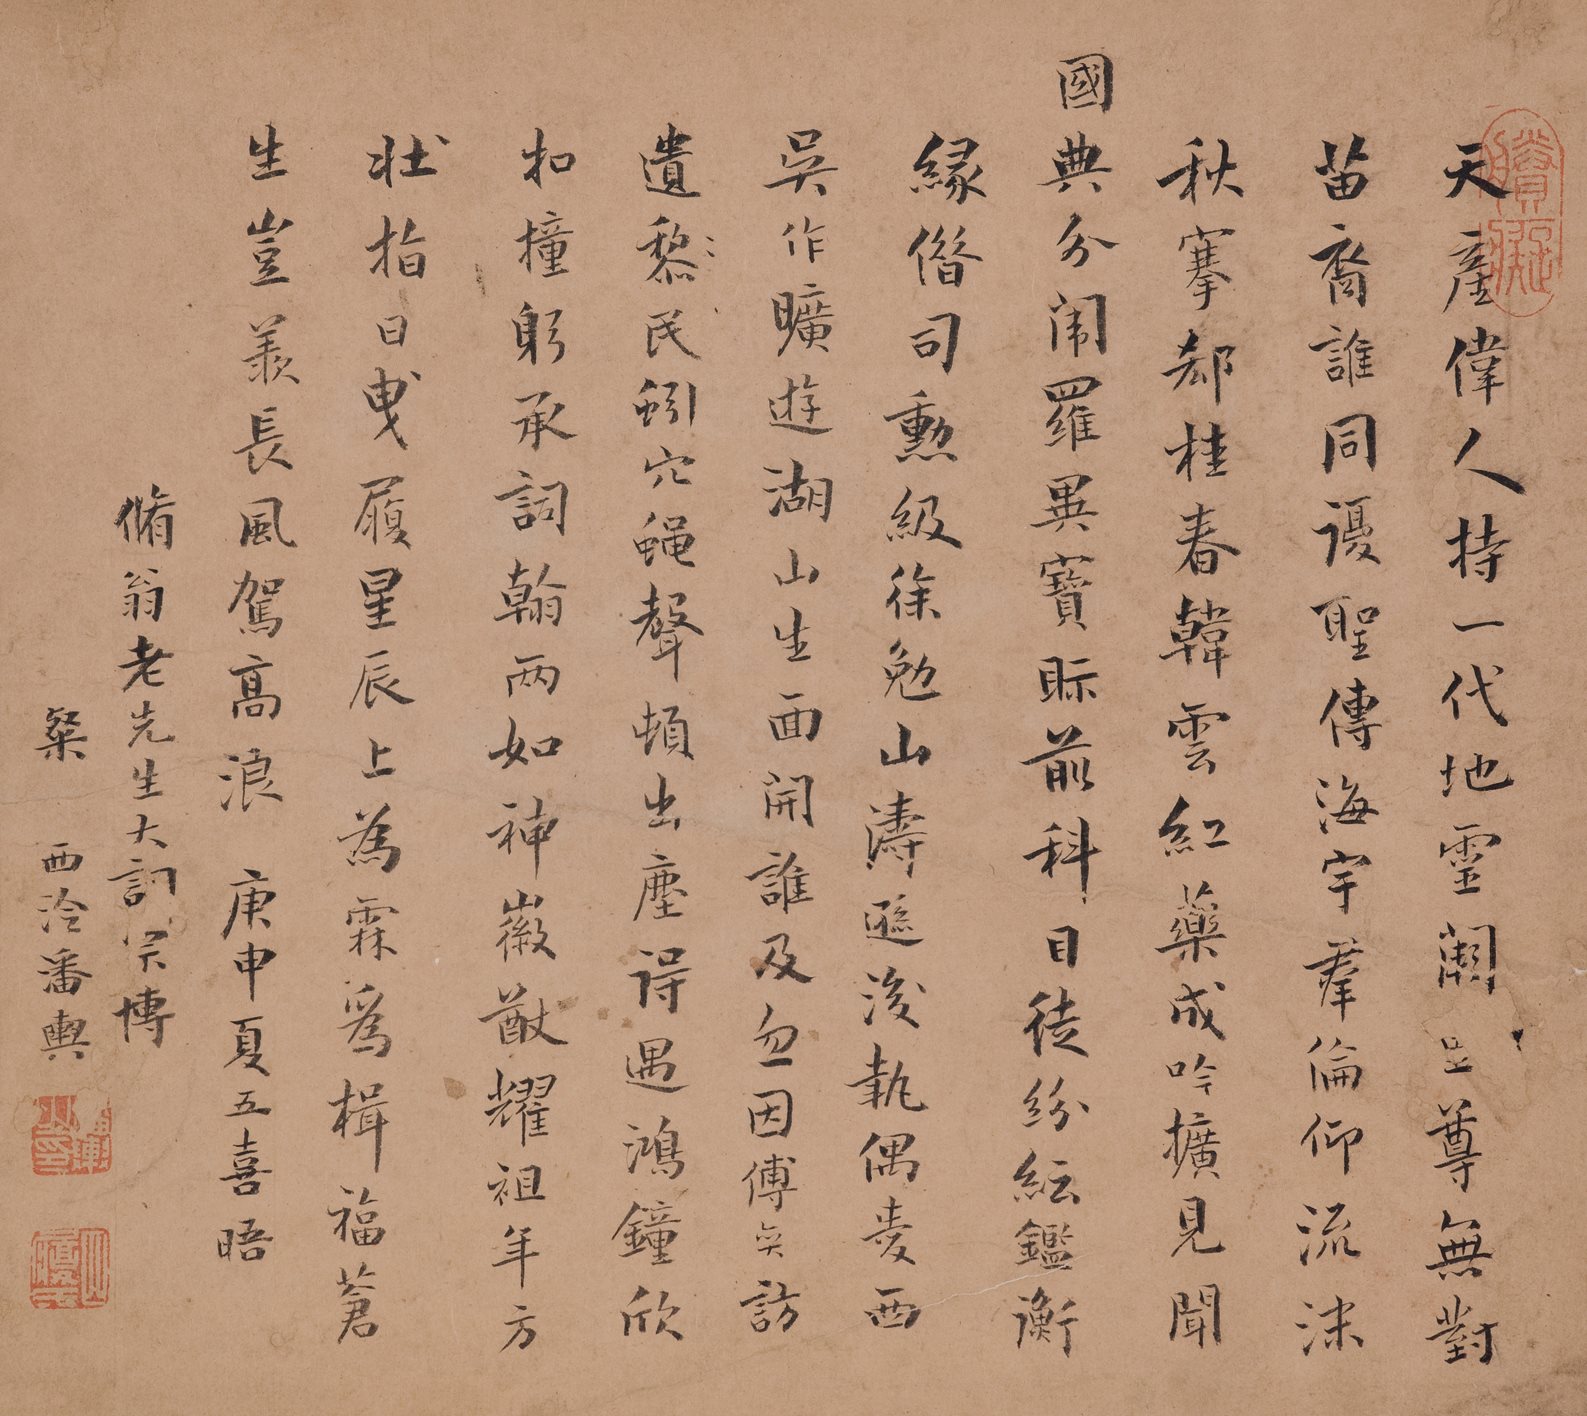 天産偉人持一代地靈闕里尊無對
苗裔誰同謖聖傳海宇羣倫仰流沫
秋搴郄桂春韓雲紅藥成吟擴見聞
國典分閘羅異寶眎前科目徒紛紜鑑衡
縁偕司勲級徐勉山濤遜浚執偶麦西
吳作曠遊湖山生面開誰及忽因傅奕訪
遺黎民蚓穴蝇聲頓出塵得遇鴻鐘欣
扣撞躬承詞翰兩如神徽猷耀祖年方
壯指日曳履星辰上為霖爲楫福蒼
生豈羡長風駕高浪 庚申夏五喜晤
脩翁老先生大詞宗博
粲 西泠潘輿